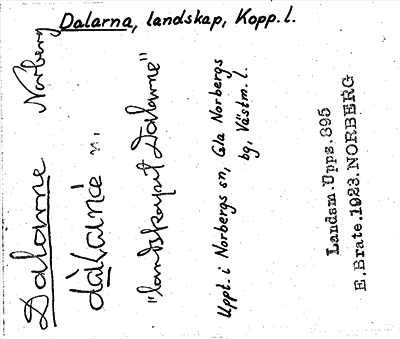 Dalarna, landskap, Kopp. l.
Dalarne Norberg
dàlvané n.
"landskapet Dalarne"
Uppt. i Norbergs sn, Gla Norbergs
bg, Västm. l.
Landsm. Upps. 395
E. Brate. 1923. NORBERG